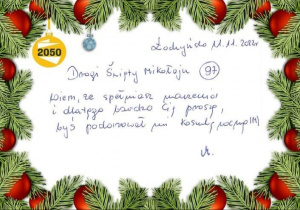 2050
11.11.
Drogi Święty Mikołaju 97
Wiem, że spełniasz marzenia
i dlatego bardzo Cię proszę,
byś podarował mi koszulę nocną (M)